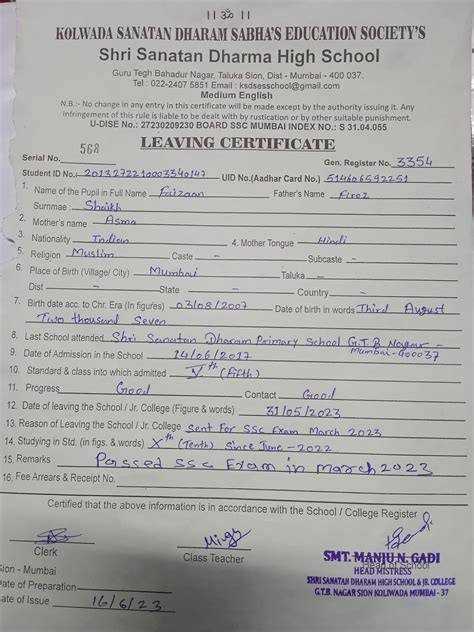 || ॐ ||
KOLWADA SANATAN DHARAM SABHA'S EDUCATION SOCIETY'S
Shri Sanatan Dharma High School
Guru Tegh Bahadur Nagar, Taluka Sion, Dist - Mumbai - 400 037.
Tel : 022-2407 5851 Email : ksdsesschool@gmail.com
Medium English
N.B. :- No change in any entry in this certificate will be made except by the authority issuing it. Any
Infringement of this rule is liable to be dealt with by rustication or by other suitable punishment.
U-DISE No.: 27230209230 BOARD SSC MUMBAI INDEX NO.: S 31.04.055
LEAVING CERTIFICATE
Serial No. 568 Gen. Register No. 3354
Student ID No. 2013272210003340147 UID No.(Aadhar Card No.) 514606592251
1. Name of the Pupil in Full Name Faizaan Father's Name Firoz
Surnmae : Shaikh
2. Mother's name Asma
3. Nationality Indian 4. Mother Tongue Hindi
5. Religion Muslim Caste - Subcaste -
6. Place of Birth (Village/ City) Mumbai Taluka -
Dist - State - Country -
7. Birth date acc. to Chr. Era (In figures) 03/08/2007 Date of birth in words Third August
Two thousand Seven
8. Last School attended Shri Sanatan Dharam Primary School G.T.B Nagar - Mumbai-400037
9. Date of Admission in the School 14/06/2017
10. Standard & class into which admitted Vth (Fifth)
11. Progress Good Contact Good
12. Date of leaving the School / Jr. College (Figure & words) 31/05/2023
13. Reason of Leaving the School / Jr. College Sent For SSc Exam March 2023
14. Studying in Std. (in figs. & words) Xth (Tenth) Since June-2022
15. Remarks Passed SSc Exam in March 2023
16. Fee Arrears & Receipt No.
Certified that the above information is in accordance with the School / College Register
Clerk
Class Teacher
SMT. MANJU N. GADI
Head of School
HEAD MISTRESS
SHRI SANATAN DHARAM HIGH SCHOOL & JR. COLLEGE
G.T.B. NAGAR SION KOLIWADA MUMBAI - 37
Sion - Mumbai
Date of Preparation
Date of Issue 16/6/23